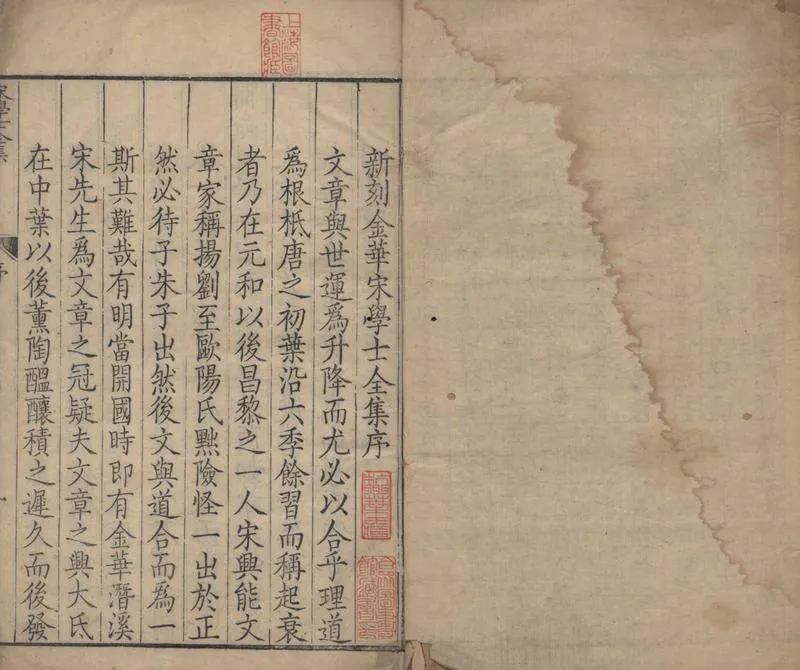 新刻金華宋學士全集序
文章與世運爲升降而尤必以合乎理道
爲根柢唐之初葉沿六季餘習而稱起衰
者乃在元和以後昌黎之一人宋興能文
章家稱揚劉至歐陽氏黜險怪一出於正
然必待子朱子出然後文與道合而爲一
斯其難哉有明當開國時即有金華潛溪
宋先生爲文章之冠疑夫文章之興大氐
在中葉以後薰陶醞釀積之遲久而後發
宋學士全集
序
一
上海圖書館藏